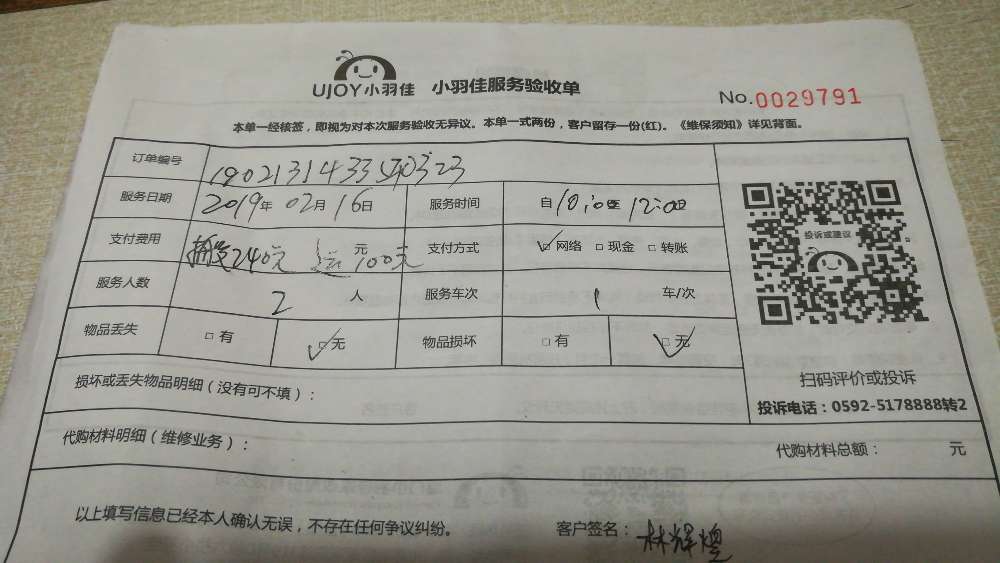 UJOY小羽佳 小羽佳服务验收单
No.0029791
本单一经核签，即视为对本次服务验收无异议。本单一式两份，客户留存一份(红)。《维保须知》详见背面。
订单编号
服务日期 2019年 02月 16日 服务时间 自10:00至12:00
支付费用 240元 元 100元 支付方式 ☑网络 □现金 □转账
服务人数 2 人 服务车次 1 车/次
物品丢失 □有 ☑无 物品损坏 □有 ☑无
损坏或丢失物品明细（没有可不填）：
代购材料明细（维修业务）： 代购材料总额： 元
以上填写信息已经本人确认无误，不存在任何争议纠纷。 客户签名：林辉煌
投诉或建议
扫码评价或投诉
投诉电话：0592-5178888转2